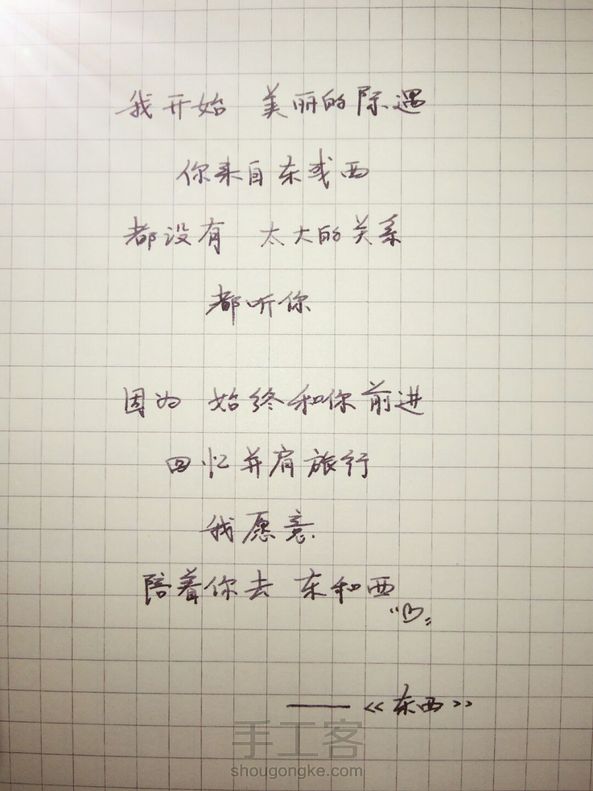 我开始 美丽的际遇
你来自东或西
都没有 太大的关系
都听你
因为 始终和你前进
回忆并肩旅行
我愿意
陪着你去 东和西
——《东西》
手工客
shougongke.com